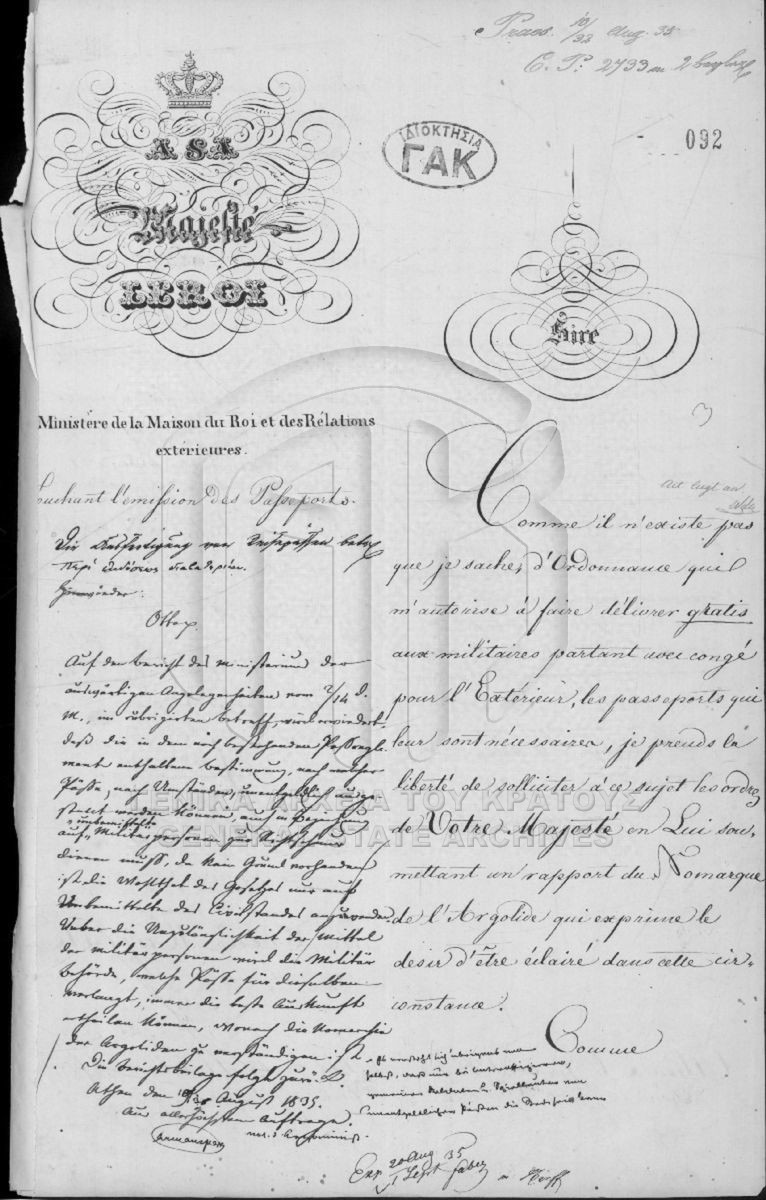 Praes. 10/22 Aug. 35
E. P. 2793 m 2 Beylag
ΙΔΙΟΚΤΗΣΙΑ
ΓΑΚ
092
A SA
Majesté
LE ROI
Sire
Ministère de la Maison du Roi et des Rélations
extérieures.
Touchant l'émission des Passeports.
Die Ausfertigung von Reisepässen betr.
περὶ ἐκδόσεως διαβατηρίων.
Otto
Auf den Bericht des Ministeriums der
auswärtigen Angelegenheiten vom 2/14 d.
M., im rubrizirten Betreff, wird erwiedert,
daß die in dem noch bestehenden Passregle-
ment enthaltene Bestimmung, nach welcher
Pässe, nach Umständen, unentgeldlich ausge-
stellt werden können, auch in Beziehung
auf unbemittelte Militärpersonen zur Richtschnur
dienen muß, da kein Grund vorhanden
ist, die Wohlthat des Gesetzes nur auf
Unbemittelte des Civilstandes anzuwenden.
Ueber die Unzulänglichkeit der Mittel
der Militärpersonen wird die Militär
behörde, welche Pässe für dieselben
verlangt, immer die beste Auskunft
ertheilen können, wonach die Nomarchie
der Argoliden zu verständigen ist.
Die Berichtsbeilage folgt zurück.
Athen den August 1835.
Aus allerhöchstem Auftrage.
Armansperg
3
Comme il n'existe pas
que je sache, d'Ordonnance qui
m'autorise à faire délivrer gratis
aux militaires partant avec congé
pour l'Extérieur, les passeports qui
leur sont nécessaires, je prends la
liberté de solliciter à ce sujet les ordres
de Votre Majesté en Lui sou-
mettant un rapport du Nomarque
de l'Argolide qui exprime le
désir d'être éclairé dans cette cir-
constance.
Comme
Exp. 20 Aug 35
1 Sept
ΓΕΝΙΚΑ ΑΡΧΕΙΑ ΤΟΥ ΚΡΑΤΟΥΣ
GENERAL STATE ARCHIVES